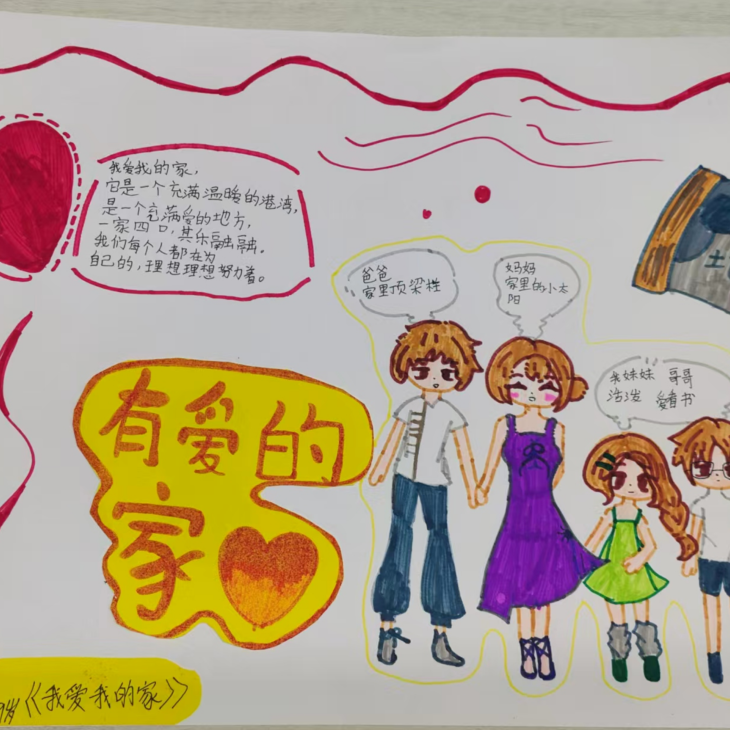 我爱我的家，
它是一个充满温暖的港湾，
是一个充满爱的地方，
一家四口，其乐融融。
我们每个人都在为
自己的，理想理想努力着。
爸爸
家里顶梁柱
妈妈
家里的小太
阳
我妹妹 哥哥
活泼 爱看书
有爱的
家
土
9岁《我爱我的家》